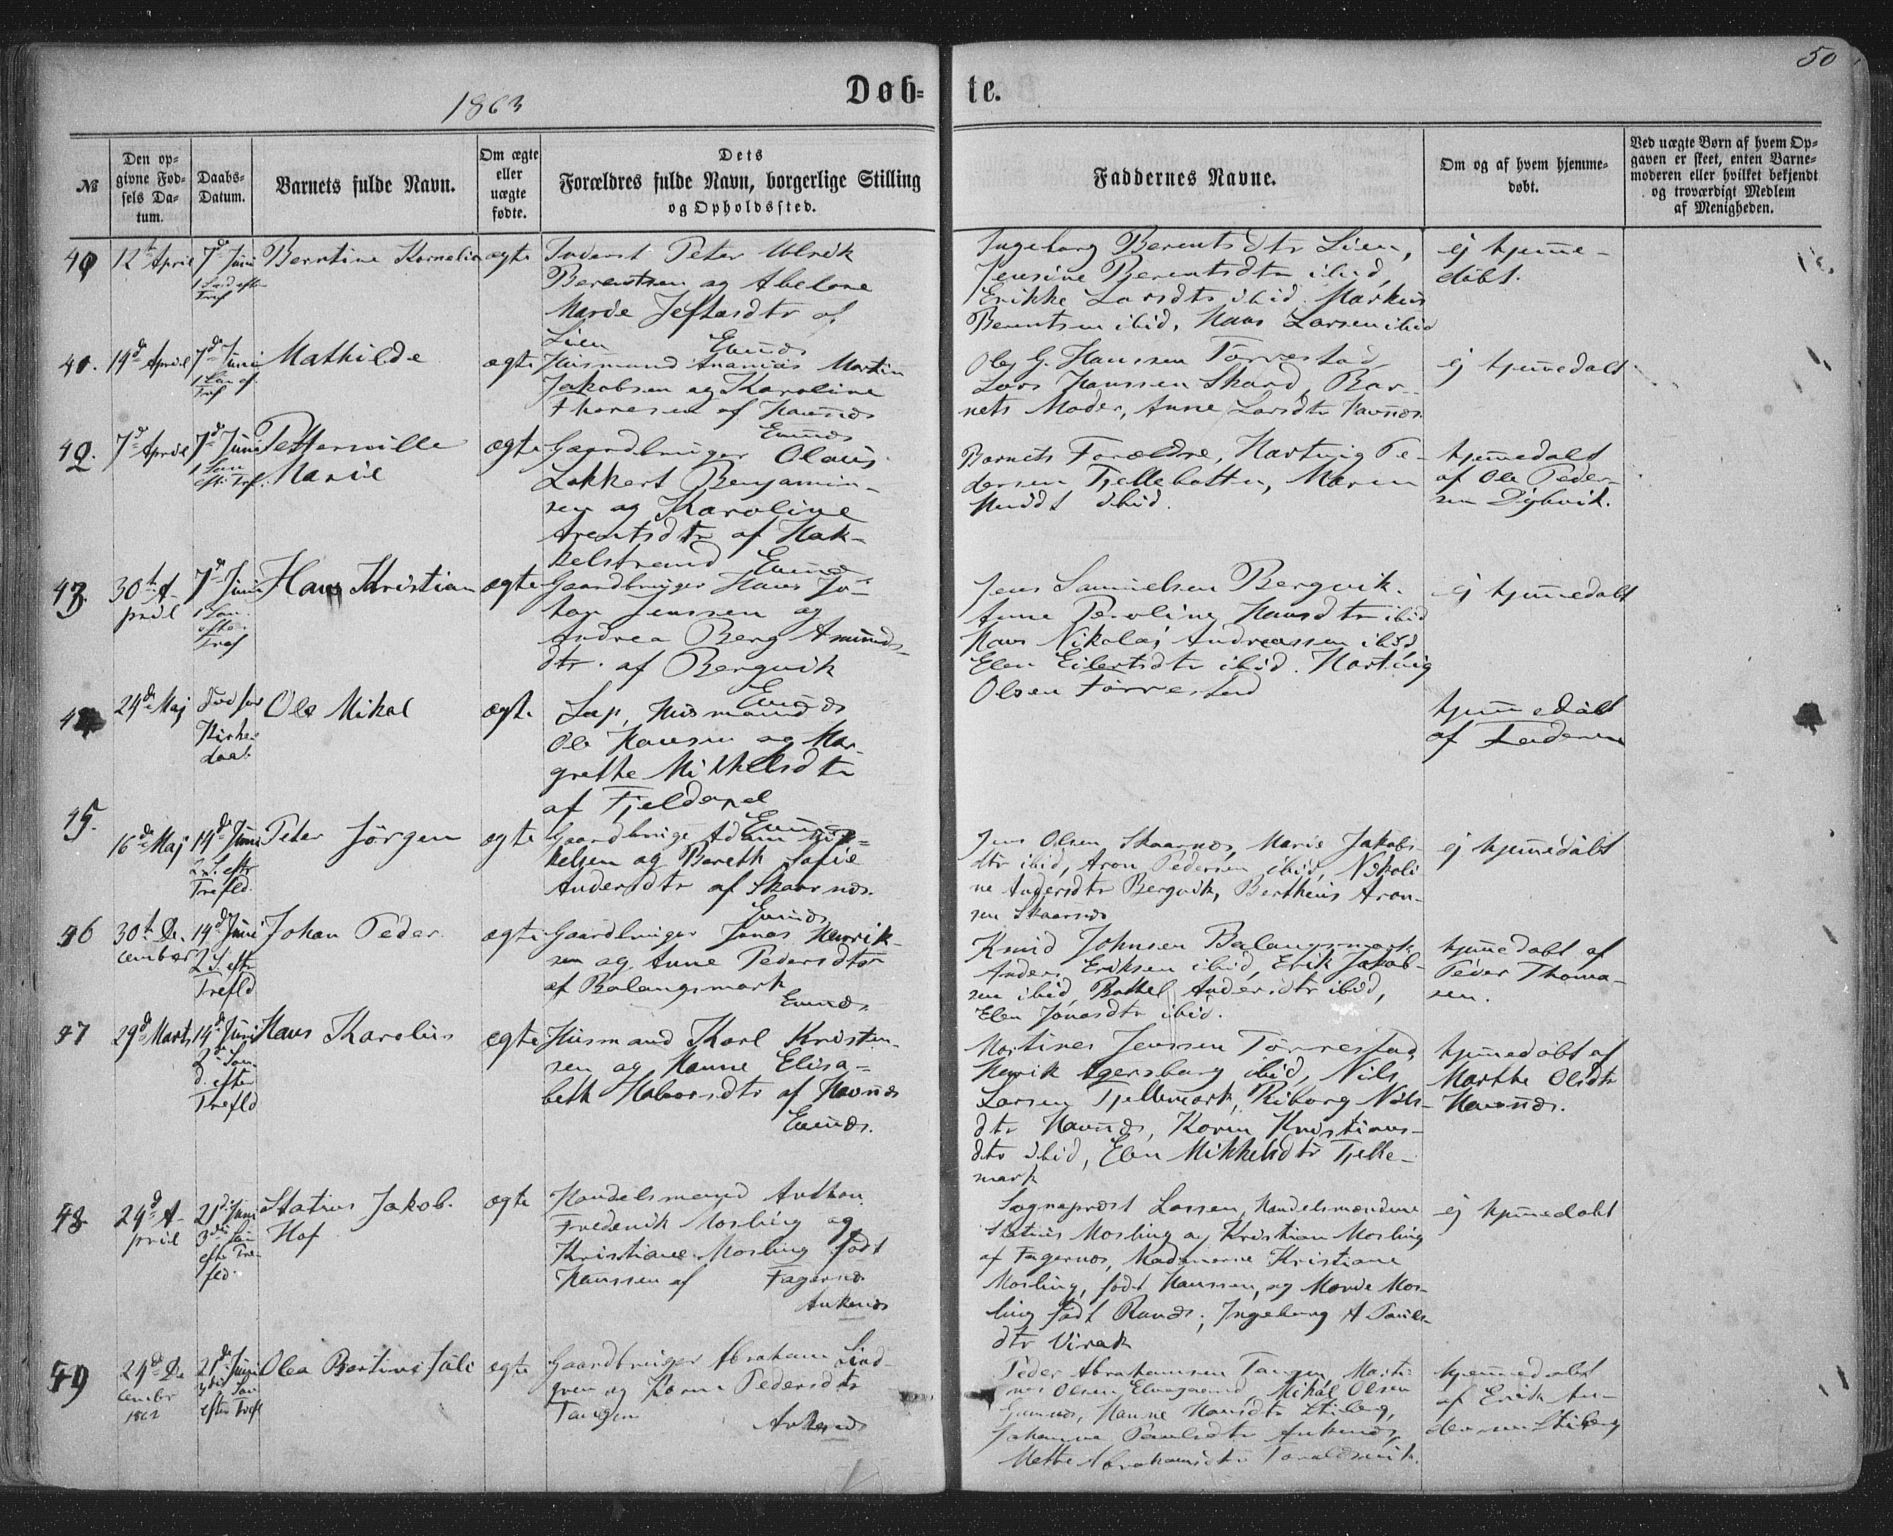 50
1863
Døb-
te.
№
Den op-
givne Fød-
sels Da-
tum.
Daabs-
Datum.
Barnets fulde Navn.
Om ægte
eller
uægte
fødte.
Dets
Forældres fulde Navn, borgerlige Stilling
og Opholdssted.
Faddernes Navne.
Om og af hvem hjemme-
døbt.
Ved uægte Børn af hvem Op-
gaven er skeet, enten Barne-
moderen eller hvilket bekjendt
og troværdigt Medlem
af Menigheden.
40
12te April
7de Juni
1 Søn eft
Tref
Berntine Kornelia
ægte
Inderst Peter Ulrik
Berentsen og Abelone
Marie Jeftasdtr af
Lien Evenæs
Ingeborg Berentsdtr Lien,
Jensine Berentsdtr ibid,
Erikke Larsdtr ibid. Markus
Berentsen ibid, Hans Larsen ibid
ej hjemme-
døbt.
41.
19de April
7de Juni
1 Søn ef.
Tref
Mathilde
ægte
Huusmand Ananias Martin
Jakobsen og Karoline
Thoresen af Havnnæs
Evenæs
Ole G. Hanssen Tørrestad,
Lars Hanssen Skard, Bar-
nets Moder, Anne Larsdtr Havnnæs
ej hjemmedøbt
42.
7de April
7de Juni
1 Søn
eft. Tref.
Petterville
Marie
ægte
Gaardbruger Olaus
Lokkert Benjamin-
sen og Karoline
Arentsdtr af Hak-
kelstrand Evenæs
Barnets Forældre, Hartvig Pe-
dersen Tjellebotten, Maren
ibid.
hjemmedøbt
af Ole Peder-
sen Dybvik.
43.
30te A-
pril
7de Juni
1 Søn.
efter
Tref
Hans Kristian
ægte
Gaardbruger Hans Jo-
han Jenssen og
Andrea Berg Amunds-
dtr. af Bergvik
Evenæs
Jens Samuelsen Bergvik.
Anne Peroline Hansdtr ibid
Hans Nikolai Andreassen ibid,
Elen Eilertsdtr ibid. Hartvig
Olsen Tørrestad
ej hjemmedøbt
44
24de Maj
Død før
Kirke-
daab.
Ole Mikal
ægte
Lap, Huusmand
Ole Hansen og Mar-
grethe Mikkelsdtr
af Fjeldapel
Evenæs
hjemmedøbt
af Faderen
45.
16de Maj
14de Juni
2 S. eftr
Trefld.
Peter Jørgen
ægte
Gaardbruger Adam Mik-
kelsen og Bereth Sofie
Andersdtr af Skaarnæs.
Evenæs
Jens Olsen Skaarnæs, Marie Jakobs-
dtr ibid, Aron Pedersen ibid, Nikoli-
ne Andersdtr Bergvik, Bertheus Aron-
sen Skaarnæs
ej hjemmedøbt
46
30te De-
cember
14de Juni
2 S. eftr
Trefld
Johan Peder
ægte
Gaardbruger Jonas Henrik-
sen og Anne Pedersdtr
af Balangsmark
Evenæs.
Knud Johnsen Balangsmark
Anders Eriksen ibid, Erik Jakob-
sen ibid, Bathel Andersdtr ibid,
Elen Jonasdtr ibid.
hjemmedøbt af
Peder Thoma-
sen.
47
29de Marts
14de Juni
2de Søn-
d. efter
Trefld
Hans Karolius
ægte
Huusmand Karl Kristen-
sen og Hanne Elisa-
beth Halvorsdtr af Havnnæs
Evenæs.
Martines Jenssen Tørrestad,
Henrik Agersborg ibid, Nils
Larsen Tjellemark, Riborg Nils-
dtr Havnnæs, Karen Kristians-
dtr ibid, Elen Mikkelsdtr Tjelle-
mark
hjemmedøbt af
Marthe Olsdtr
Havnnæs.
48
24de A-
pril
21de Juni
3die Søn
efter Tre-
fld.
Statius Jakob
Hof
ægte
Handelsmand Anthon
Frederik Mosling og
Kristiane Mosling født
Hanssen af Fagernæs
Ankenæs
Sogneprest Lassen, Handelsmændene
Statius Mosling og Kristian Mosling
af Fagernæs, Madamerne Kristiane
Mosling, født Hanssen, og Marie Mos-
ling født Randæ, Ingeborg A Pauls-
dtr Virak
ej hjemmedøbt
49
24de De
cember
1862
21de Juni
3die Søn
efter Tref
Olea Bertine Juli
ægte
Gaardbruger Abraham Lind-
gren og Karen Pedersdtr
Tangen
Ankenæs
Peder Abrahamsen Tangen, Marti-
nus Olsen Elvegaard, Mikal Olsen
Hanne Hansdtr Stiberg,
Johanna Paulsdtr Ankenæs,
Mette Abrahamsdtr Taraldsvik.
hjemmedøbt
af Erik An-
dersen Stiberg